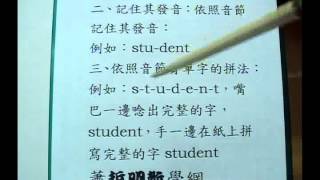 二、記住其發音：依照音節
記住其發音：
例如：stu-dent
三、依照音節 單字的拼法：
例如：s-t-u-d-e-n-t，嘴
巴一邊唸出完整的字，
student，手一邊在紙上拼
寫完整的字 student
蕭哲明 學網